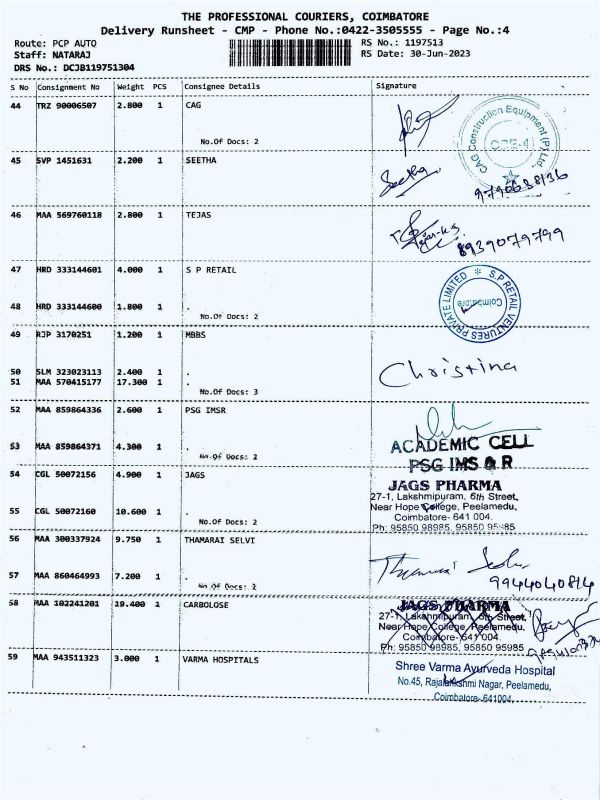 THE PROFESSIONAL COURIERS, COIMBATORE
Delivery Runsheet - CMP - Phone No.:0422-3505555 - Page No.:4
Route: PCP AUTO
Staff: NATARAJ
DRS No.: DCJB119751304
RS No.: 1197513
RS Date: 30-Jun-2023
S No Consignment No Weight PCS Consignee Details Signature
44 TRZ 90006507 2.800 1 CAG
No.Of Docs: 2
CAG Construction Equipment (P) Ltd.
45 SVP 1451631 2.200 1 SEETHA
Seetha
9790638136
46 MAA 569760118 2.800 1 TEJAS
8939079799
47 HRD 333144601 4.000 1 S P RETAIL
48 HRD 333144600 1.800 1 .
No.Of Docs: 2
S.P RETAIL VENTURES PRIVATE LIMITED
Coimbatore
49 RJP 3170251 1.200 1 MBBS
50 SLM 323023113 2.400 1 .
51 MAA 570415177 17.300 1 .
No.Of Docs: 3
Christina
52 MAA 859864336 2.600 1 PSG IMSR
53 MAA 859864371 4.300 1 .
No.Of Docs: 2
ACADEMIC CELL
PSG IMS & R
54 CGL 50072156 4.900 1 JAGS
55 CGL 50072160 10.600 1 .
No.Of Docs: 2
JAGS PHARMA
27-1, Lakshmipuram, 6th Street,
Near Hope College, Peelamedu,
Coimbatore- 641 004.
Ph: 95850 98985, 95850 95985
56 MAA 300337924 9.750 1 THAMARAI SELVI
57 MAA 860464993 7.200 1 .
No.Of Docs: 2
9944040814
58 MAA 102241201 19.400 1 CARBOLOSE
JAGS PHARMA
27-1, Lakshmipuram, 6th Street,
Near Hope College, Peelamedu,
Coimbatore- 641 004.
Ph: 95850 98985, 95850 95985
59 MAA 943511323 3.000 1 VARMA HOSPITALS
Shree Varma Ayurveda Hospital
No.45, Rajalakshmi Nagar, Peelamedu,
Coimbatore-641004.